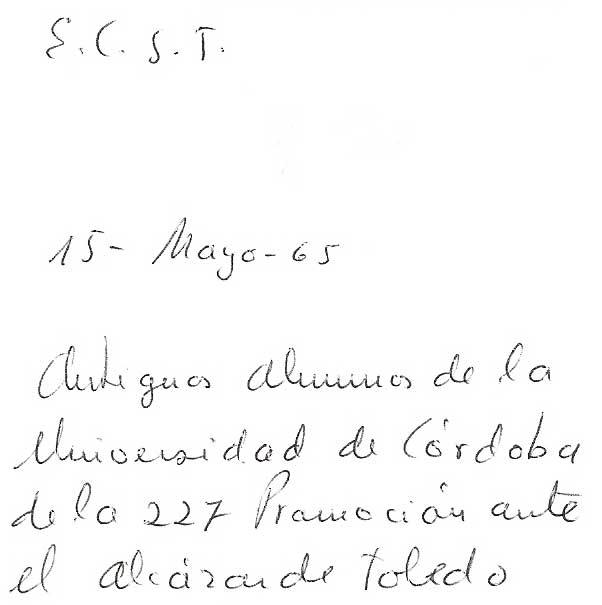 E.C.S.T.
15- Mayo-65
Antiguos alumnos de la
Universidad de Córdoba
de la 227 Promoción ante
el alcázar de Toledo